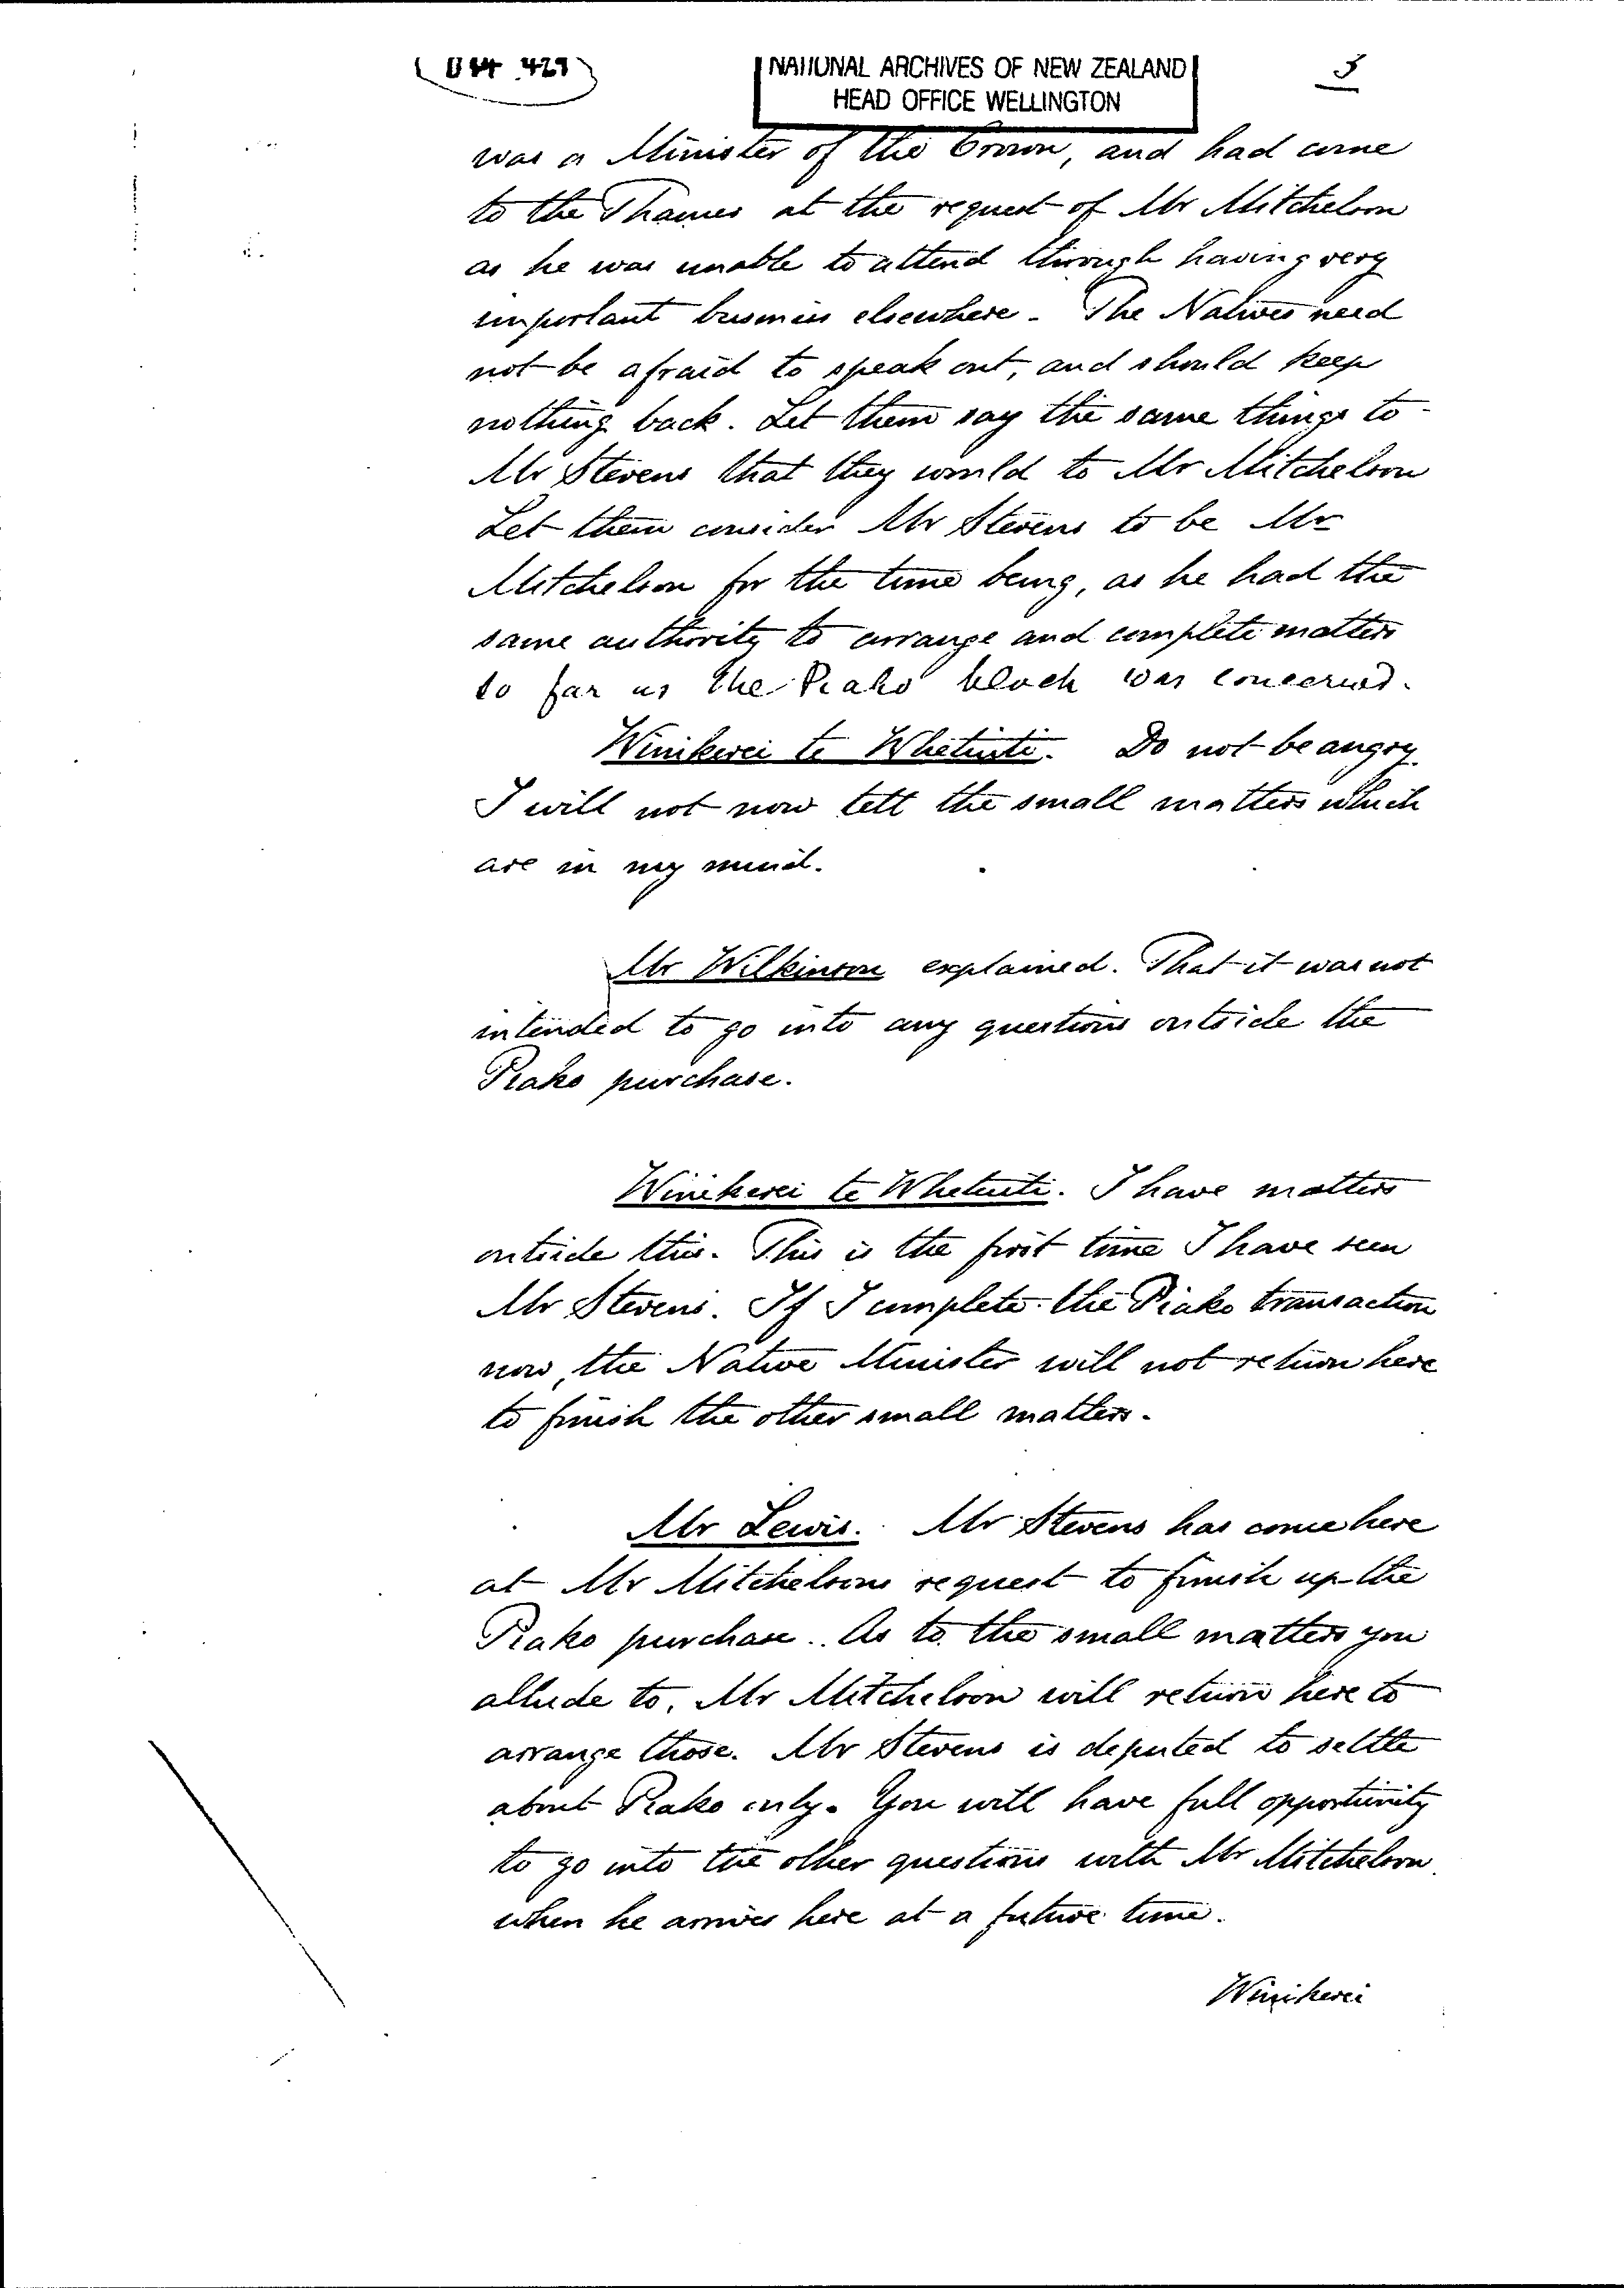 NATIONAL ARCHIVES OF NEW ZEALAND
HEAD OFFICE WELLINGTON
3
was a Minister of the Crown, and had come
to the Thames at the request of Mr Mitchelson
as he was unable to attend through having very
important business elsewhere - The Natives need
not be afraid to speak out, and should keep
nothing back. Let them say the same things to
Mr Stevens that they would to Mr Mitchelson
Let them consider Mr Stevens to be Mr
Mitchelson for the time being, as he had the
same authority to arrange and complete matters
so far as the Piako block was concerned.
Winikerei te Whetuiti. Do not be angry.
I will not now tell the small matters which
are in my mind.
Mr Wilkinson explained. That it was not
intended to go into any questions outside the
Piako purchase.
Winikerei te Whetuiti. I have matters
outside this. This is the first time I have seen
Mr Stevens. If I complete the Piako transaction
now, the Native Minister will not return here
to finish the other small matters.
Mr Lewis. Mr Stevens has come here
at Mr Mitchelsons request to finish up the
Piako purchase. As to the small matters you
allude to, Mr Mitchelson will return here to
arrange those. Mr Stevens is deputed to settle
about Piako only. You will have full opportunity
to go into the other questions with Mr Mitchelson
when he arrives here at a future time.
Winikerei